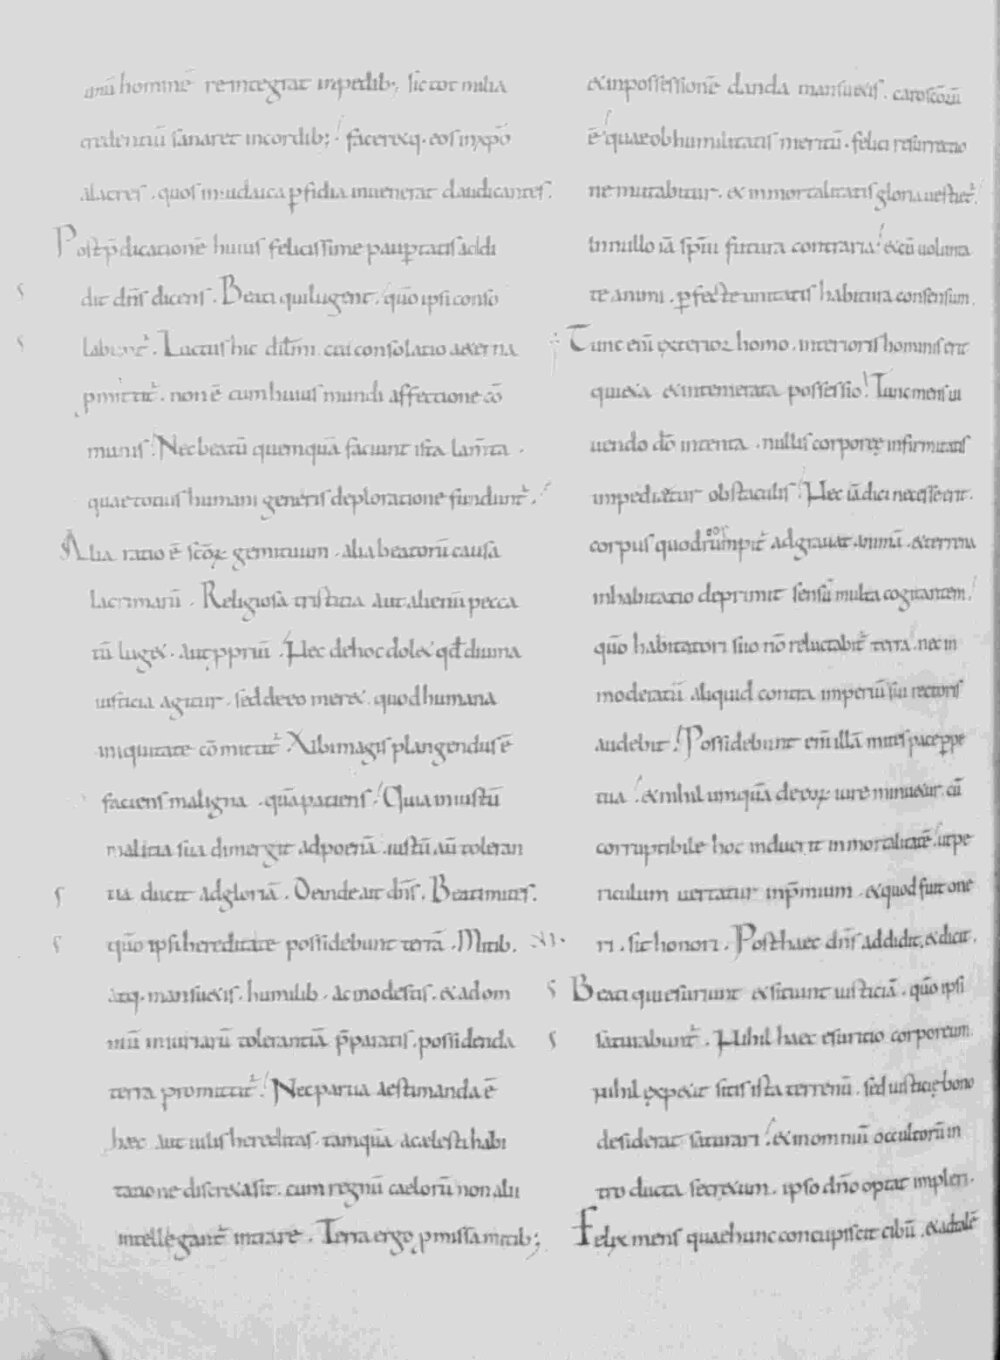 unū hominē reintegrat inpedib; sic tot milia
credentiū sanaret in cordib; faceretq. eos inxp̄o
alacres . quos iniudaica ꝑfidia inuenerat claudicantes.
Post p̄dicationē huius felicissime pauꝑtatis addi
dit dn̄s dicens . Beati qui lugent . qūo ipsi conso
labunt᷑ . Luctus hic dil̄mi cui consolatio aeterna
ꝓmittit᷑ . non ē cum huius mundi affectione cō
munis . Nec beatū quemquā faciunt ista lam̄ta .
quae totius humani generis deploratione fundunt᷑ .
Alia ratio ē sc̄oꝝ gemituum . alia beatorū causa
lacrimarū . Religiosa tristitia aut alienū pecca
tū luget . aut ꝓpriū . Nec de hoc dolet qđ diuina
iusticia agitur . sed de eo meret . quod humana
iniquitate cōmittit᷑ . Xibi magis plangendus ē
faciens maligna . quā patiens . Quia iniustū
malitia sua dimergit ad poenā . iustū aū toleran
tia ducit ad gloriā . Deinde ait dn̄s . Beati mites .
qūo ipsi hereditate possidebunt terrā . Mitib. XI .
atq. mansuetis . humilib . ac modestis . et ad om
niū iniuriarū tolerantiā p̄paratis . possidenda
terra promittit᷑ . Nec parua aestimanda ē
haec aut uilis hereditas . tamquā a caelesti habi
tatione discreta sit . cum regnū caelorū non alii
intellegant᷑ intrare . Terra ergo ꝓmissa mitib;
et inpossessionē danda mansuetis . caro sc̄orū
ē quae ob humilitatis meritū . felici resurrectio
ne mutabitur . et inmortalitatis gloria uestiet᷑ .
In nullo iā sp̄iu futura contraria . et cū uolunta
te animi . ꝑfecte unitatis habitura consensum .
Tunc eni ̄ exterior homo . interioris hominis erit
quieta et intemerata possessio . Tunc mens ui
uendo dō intenta . nullis corporeę infirmitatis
impediatur obstaculis . Nec iā dici necesse erit .
corpus quod corrumpit᷑ adgrauat animā . et terrena
inhabitatio deprimit sensū multa cogitantem .
qūo habitatori suo nō reluctabit᷑ terra . nec in
moderatū aliquid contra imperiū sui rectoris
audebit . Possidebunt em̄ illā mites pace ꝑpe
tua . et nihil umquā de eoꝝ iure minuetur . cū
corruptibile hoc induerit inmortalitatē . ut pe
riculum uertatur inp̄mium . et quod fuit one
ri . sit honori . Post haec dn̄s addidit, et dicit .
Beati qui esuriunt et sitiunt iusticiā . qūo ipsi
saturabunt᷑ . Nihil haec esuritio corporeum .
nihil expetit sitis ista terrenū . sed iusticię bono
desiderat saturari . et in omniū occultorū in
tro ducta secretum . ipso dn̄o optat impleri .
Felix mens quae hunc concupiscit cibū . et ad talē